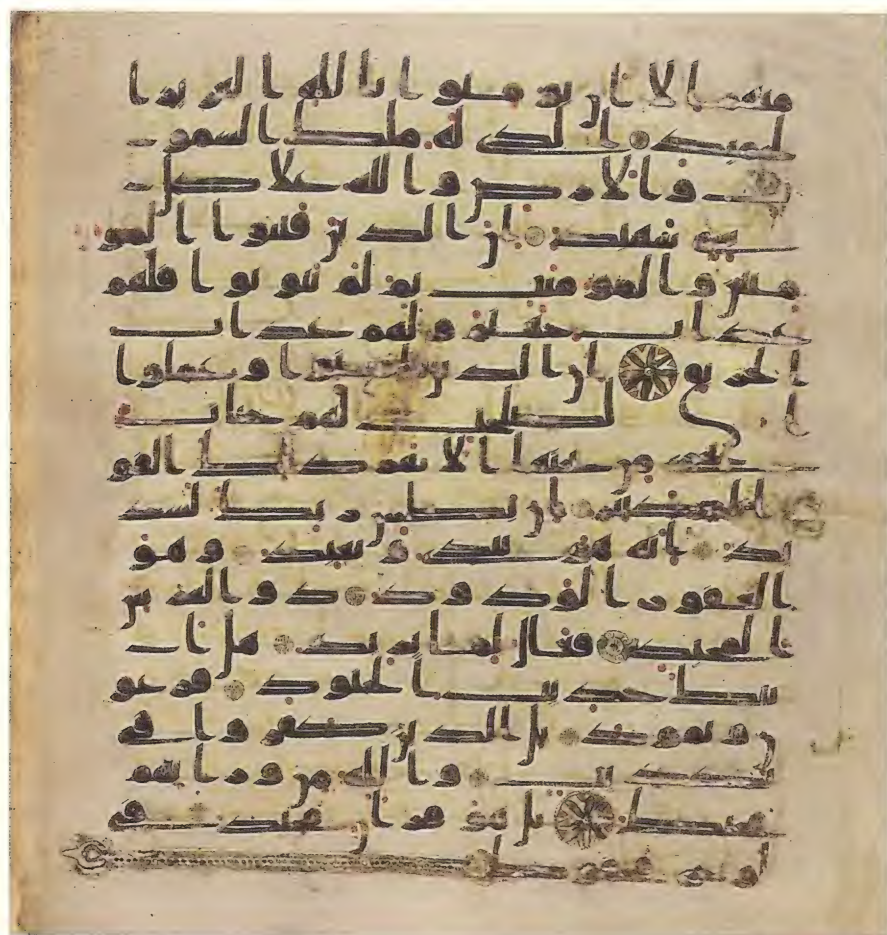 منهم الا ان يومنوا بالله العزيز ا
لحميد الذي له ملك السمو
ت والارض والله على كل ش
ىء شهيد ان الذين فتنوا المو
منين والمومنت ثم لم يتوبوا فلهم
عذاب جهنم ولهم عذاب
الحريق ان الذين امنوا وعملوا
ا لصلحت لهم جنات
تجري من تحتها الانهر ذلك الفو
ز الكبير ان بطش ربك لشد
يد انه هو يبدي ويعيد وهو
الغفور الودود ذو العرش
المجيد فعال لما يريد هل ات
يك حديث الجنود فرعو
ن وثمود بل الذين كفروا في
تكذيب والله من ورايهم
محيط بل هو قران مجيد في
لوح محفوظ